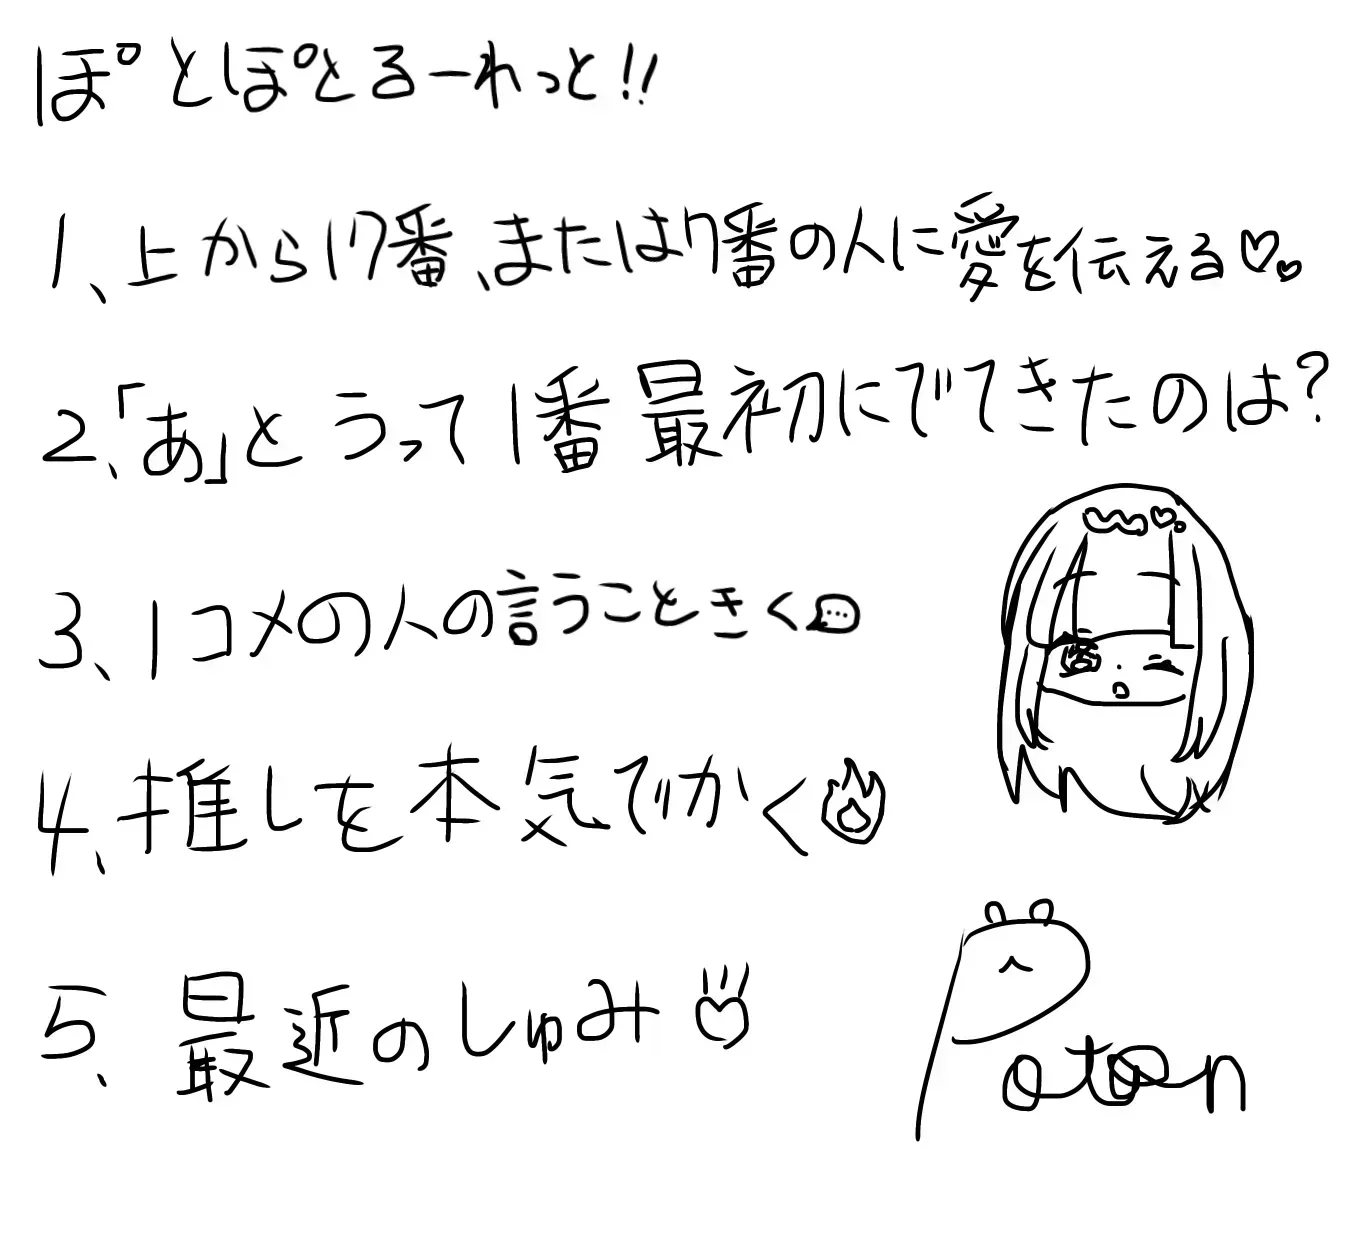 ぽとぽとるーれっと!!
1、上から17番、または7番の人に愛を伝える♡♡
2、「あ」とうって1番最初にでてきたのは?
3、1コメの人の言うことをきく💬
4、推しを本気でかく🔥
5、最近のしゅみ
Poton